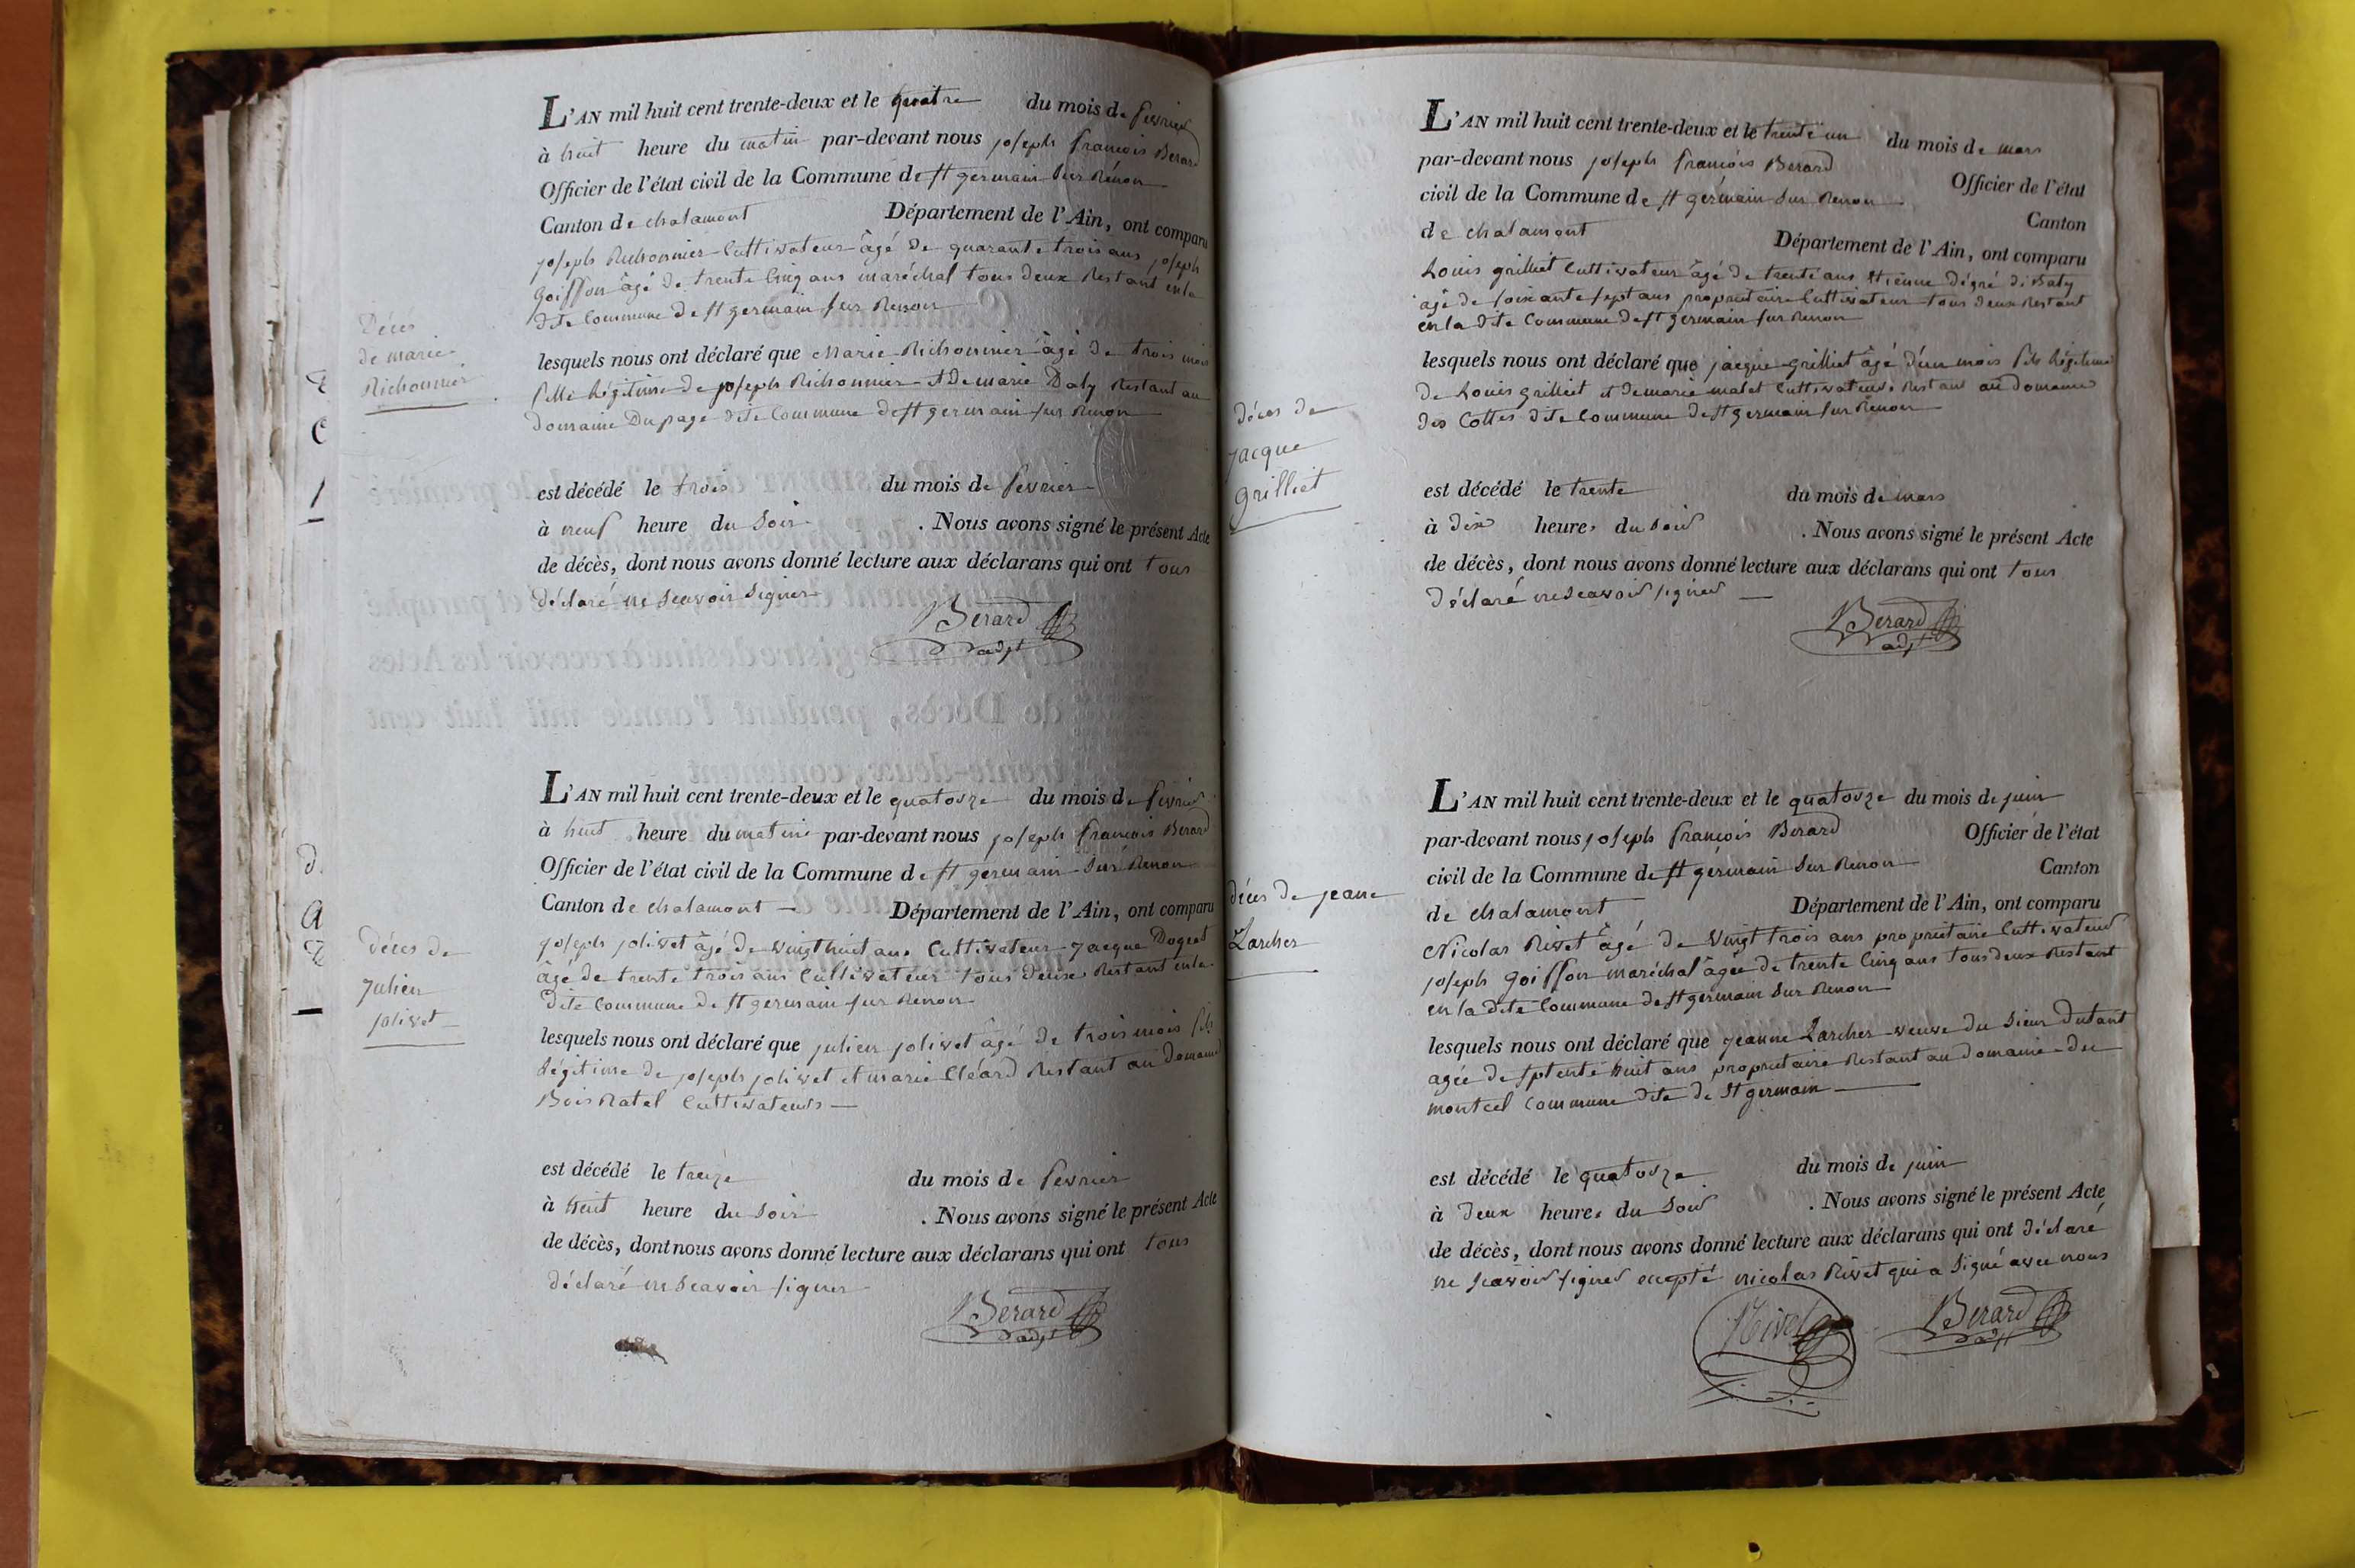 L'AN mil huit cent trente-deux et le quatre du mois de fevrier
à huit heure du matin par-devant nous joseph francois Berard
Officier de l'état civil de la Commune de st germain Sur Renon
Canton de chalamont Département de l'Ain, ont comparu
joseph Richonnier Cultivateur âgé de quarante trois ans joseph
Goiffon âgé de trente Cinq ans maréchal tous deux Restant en la
dite Commune de st germain sur Renon
Décés
de marie
Richonnier
lesquels nous ont déclaré que Marie Richonnier âgé de trois mois
fille légitime de joseph Richonnier et de marie Daly Restant au
domaine Dupage dite Commune de st germain sur Renon
est décédé le trois du mois de fevrier
à neuf heure du Soir . Nous avons signé le présent Acte
de décès, dont nous avons donné lecture aux déclarans qui ont tous
déclaré ne Scavoir Signer
Berard
adjt
L'AN mil huit cent trente-deux et le quatorze du mois de fevrier
à huit heure du matin par-devant nous joseph francois Berard
Officier de l'état civil de la Commune de st germain Sur Renon
Canton de chalamont Département de l'Ain, ont comparu
joseph jolivet âgé de vingt huit ans Cultivateur jacque Doguet
âgé de trente trois ans Cultivateur tous deux Restant en la
dite Commune de st germain sur Renon
décès de
Julien
jolivet
lesquels nous ont déclaré que julien jolivet âgé de trois mois fils
légitime de joseph jolivet et marie Cléard Restant au domaine
Bois Ratel Cultivateurs
est décédé le treize du mois de fevrier
à huit heure du Soir . Nous avons signé le présent Acte
de décès, dont nous avons donné lecture aux déclarans qui ont tous
déclaré ne Scavoir signer
Berard
adjt
L'AN mil huit cent trente-deux et le trente un du mois de mars
par-devant nous joseph francois Berard Officier de l'état
civil de la Commune de st germain Sur Renon Canton
de chalamont Département de l'Ain, ont comparu
Louis grilliet Cultivateur âgé de trente ans Etienne Dégré di Baty
âgé de soixante sept ans proprietaire Cultivateur tous deux Restant
en la dite Commune de st germain sur Renon
décès de
jacque
grilliet
lesquels nous ont déclaré que jacque grilliet âgé d'un mois fils légitime
de Louis grilliet et de marie malet Cultivateurs Restant au domaine
des Cottes dite Commune de st germain sur Renon
est décédé le trente du mois de mars
à dix heures du Soir . Nous avons signé le présent Acte
de décès, dont nous avons donné lecture aux déclarans qui ont tous
déclaré ne Scavoir signer
Berard
adjt
L'AN mil huit cent trente-deux et le quatorze du mois de juin
par-devant nous joseph francois Berard Officier de l'état
civil de la Commune de st germain Sur Renon Canton
de chalamont Département de l'Ain, ont comparu
Nicolas Rivet âgé de Vingt trois ans proprietaire Cultivateur
joseph Goiffon maréchal âgée de trente Cinq ans tous deux Restant
en la dite Commune de st germain Sur Renon
décès de jeane
Larcher
lesquels nous ont déclaré que jeanne Larcher veuve du Sieur Dutant
agée de septente huit ans proprietaire Restant au domaine du
montcel Commune dite de St germain
est décédé le quatorze du mois de juin
à deux heures du Soir . Nous avons signé le présent Acte
de décès, dont nous avons donné lecture aux déclarans qui ont déclaré
ne scavoir signer excepté nicolas Rivet qui a Signé avec nous
Rivet Berard
adjt